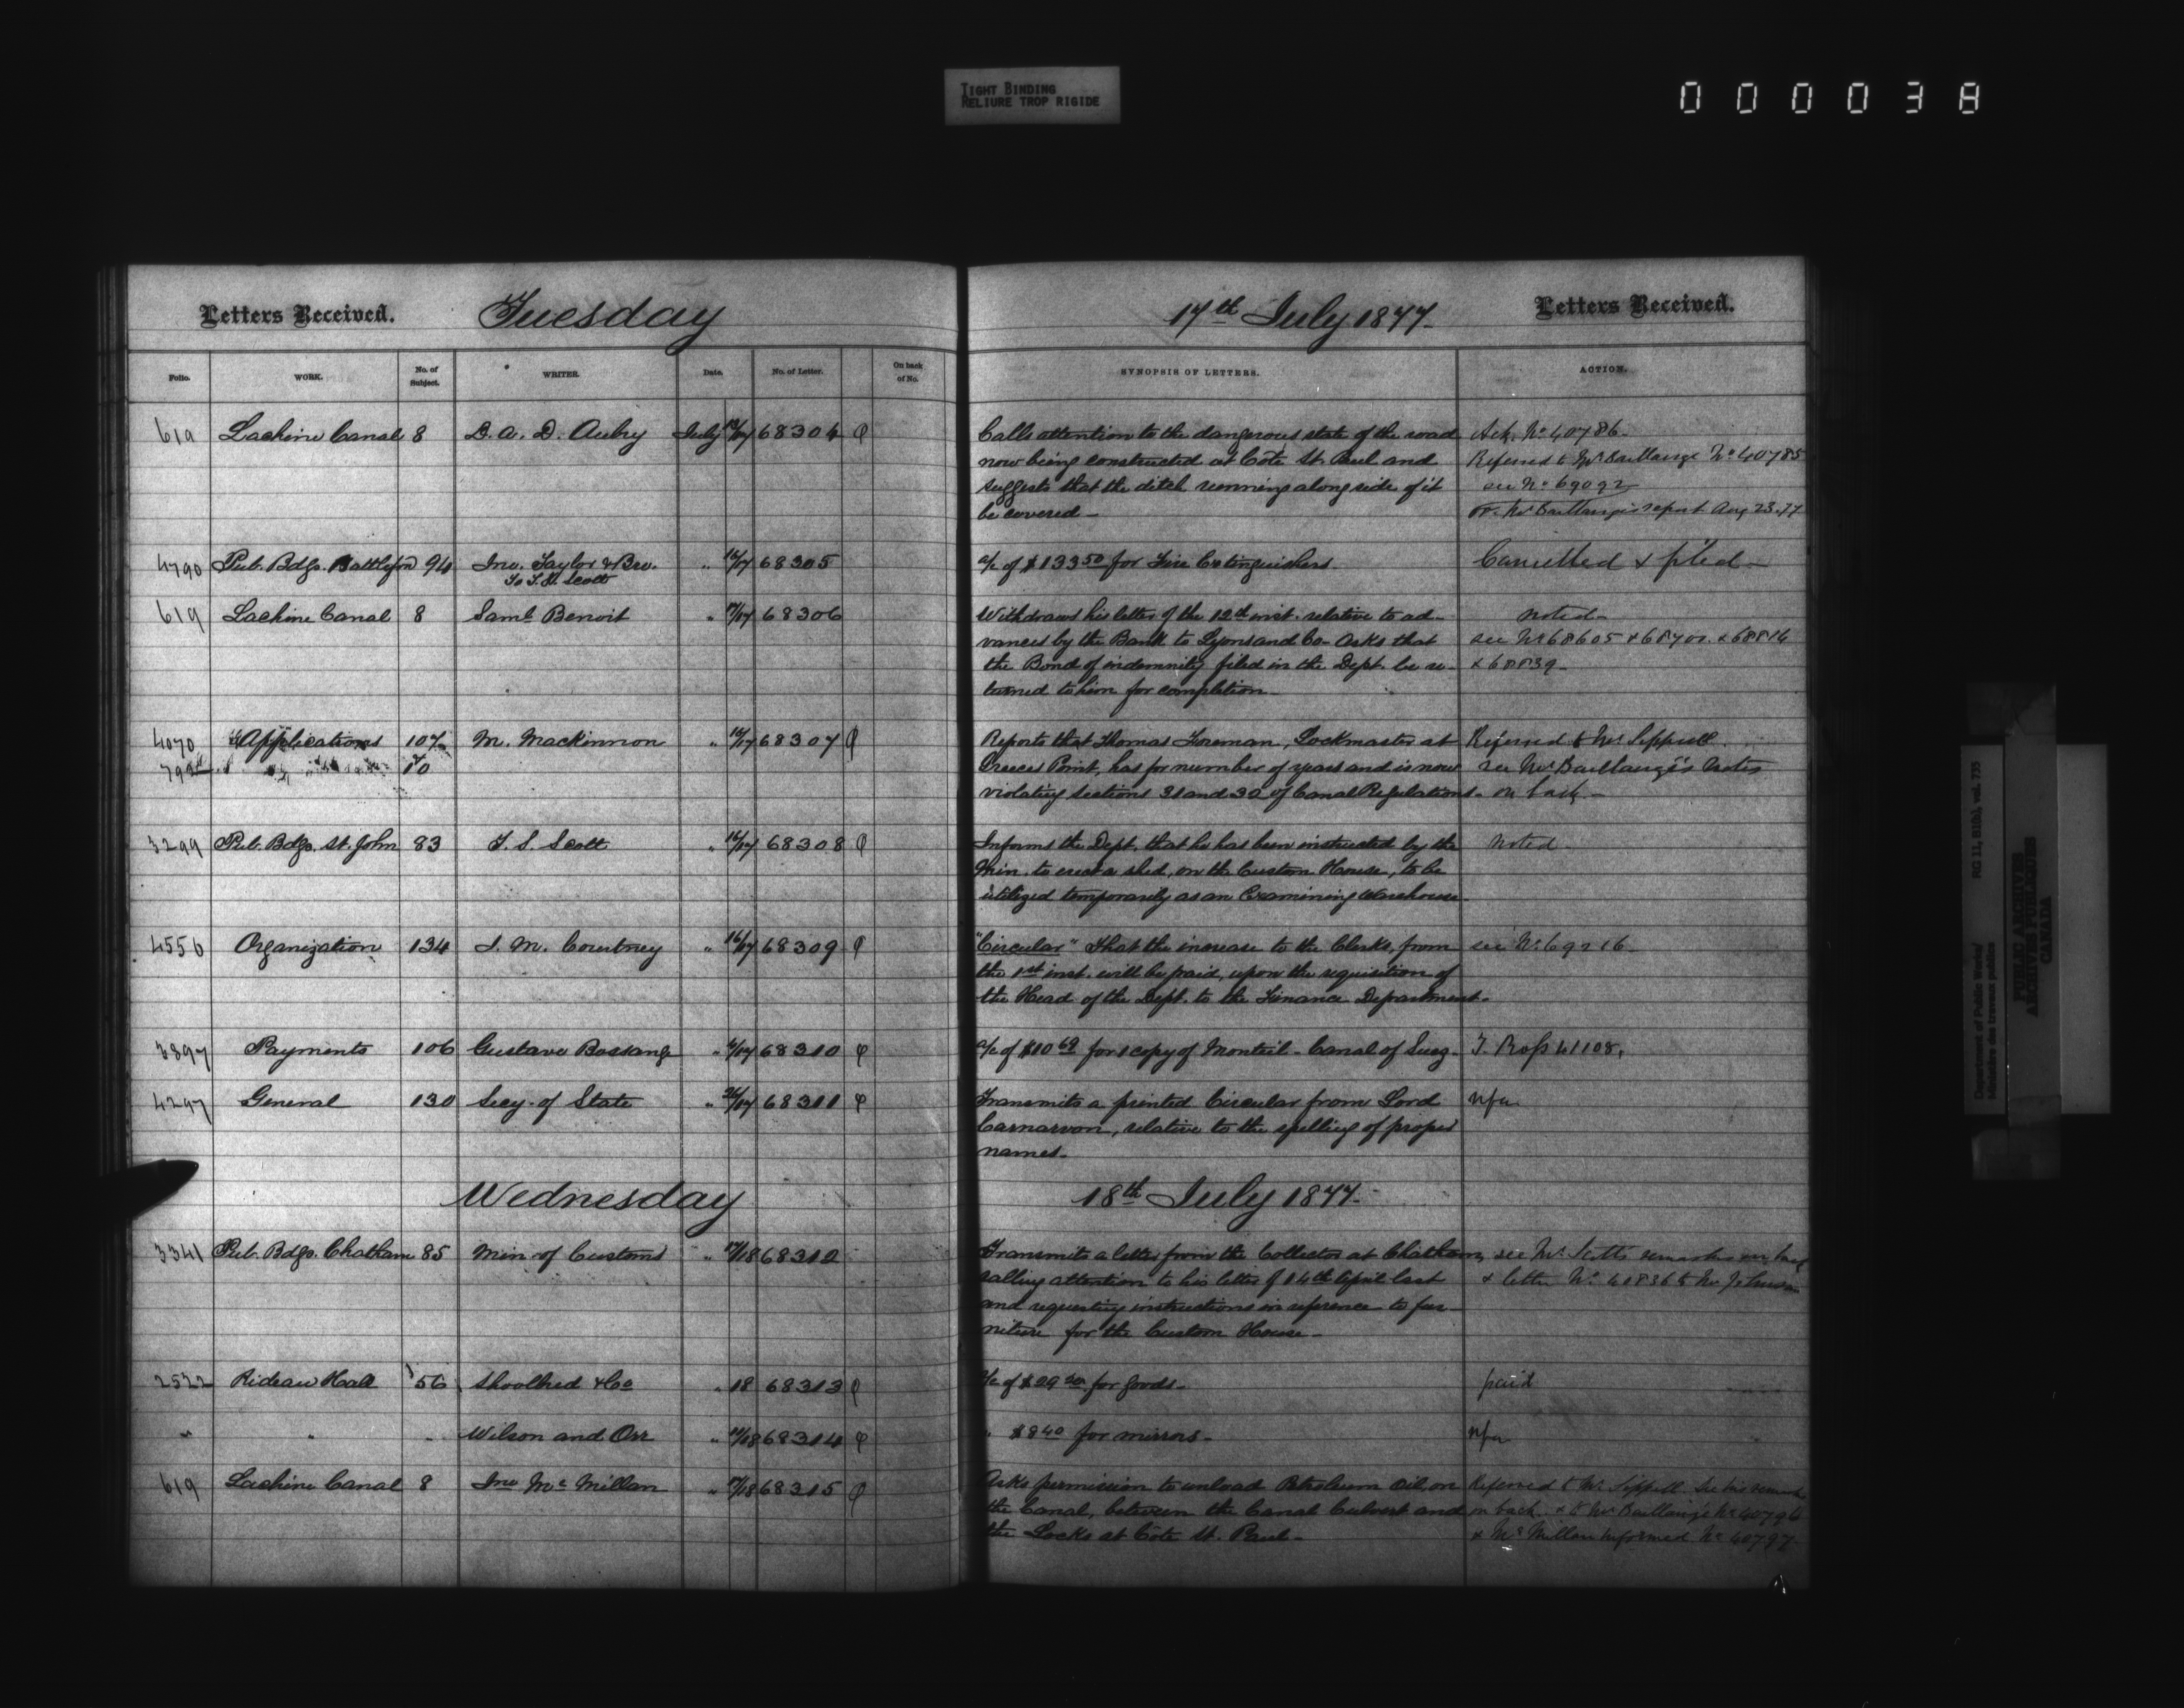 TIGHT BINDING
RELIURE TROP RIGIDE
000038
Letters Received. Tuesday 17th July 1877. Letters Received.
Folio. WORK. No. of Subject. WRITER. Date. No. of Letter. On back of No. SYNOPSIS OF LETTERS. ACTION.
619 Lachine Canal 8 D. A. D. Aubry July 68304 Calls attention to the dangerous state of the road Ack. No 40786
now being constructed at Côte St. Paul and Referred to Mr Baillairgé No 40785
suggests that the ditch running along side of it see No 69092
be covered - Mr Baillairgé's report Aug 23.77
4790 Pub. Bdgs. Battleford 94 Jno. Taylor & Bro. " 16/17 68305 a/c of $133 50 for Fire Extinguishers Cancelled & filed -
To T. S. Scott
619 Lachine Canal 8 Saml Benoit " 17/17 68306 Withdraws his letter of the 12th inst. relative to ad- noted -
vances by the Bank to Lyons and Co - Asks that see No 68605 & 68700 & 68816
the Bond of indemnity filed in the Dept. be re- & 68839 -
turned to him for completion -
4070 Applications 107 M. Mackinnon " 16/17 68307 Reports that Thomas Foreman, Lockmaster at Referred to Mr Sippell.
Greece's Point, has for number of years and is now see Mr Baillairgé's notes
violating sections 31 and 30 of Canal Regulations - on back -
3299 Pub. Bdgs. St. John 83 T. S. Scott " 16/17 68308 Informs the Dept. that he has been instructed by the noted -
Min. to erect a shed, on the Custom House, to be
utilized temporarily as an Examining Warehouse.
4556 Organization 134 J. M. Courtney " 16/17 68309 "Circular" That the increase to the Clerks, from see No 69216 -
the 1st inst. will be paid, upon the requisition of
the Head of the Dept. to the Finance Department.
3897 Payments 106 Gustave Bossange " 68310 a/c of $10 69 for 1 copy of Monteil - Canal of Suez - T. Ross 41108.
4297 General 130 Secy. of State " 68311 Transmits a printed Circular from Lord nfa
Carnarvon, relative to the spelling of proper
names -
Wednesday 18th July 1877.
3341 Pub. Bdgs. Chatham 85 Min. of Customs " 17/18 68312 Transmits a letter from the Collector at Chatham, see Mr Scott's remarks on back
calling attention to his letter of 14th April last & letter No 40836 to Mr Johnson
and requesting instructions in reference to fur-
niture for the Custom House -
2522 Rideau Hall 56 Shoolbred & Co " 18 68313 a/c of $29 for goods - paid
" " " Wilson and Orr " 68314 " $8 40 for mirrors - nfa
619 Lachine Canal 8 Jno McMillan " 17/18 68315 Asks permission to unload Petroleum Oil, on Referred to Mr Sippell. See his remarks
the Canal, between the Canal Culvert and on back. & to Mr Baillairgé No 40796
the Locks at Côte St. Paul - & McMillan informed No 40797
Department of Public Works/
Ministère des travaux publics
RG 11, B1(b), vol. 735
PUBLIC ARCHIVES
ARCHIVES PUBLIQUES
CANADA